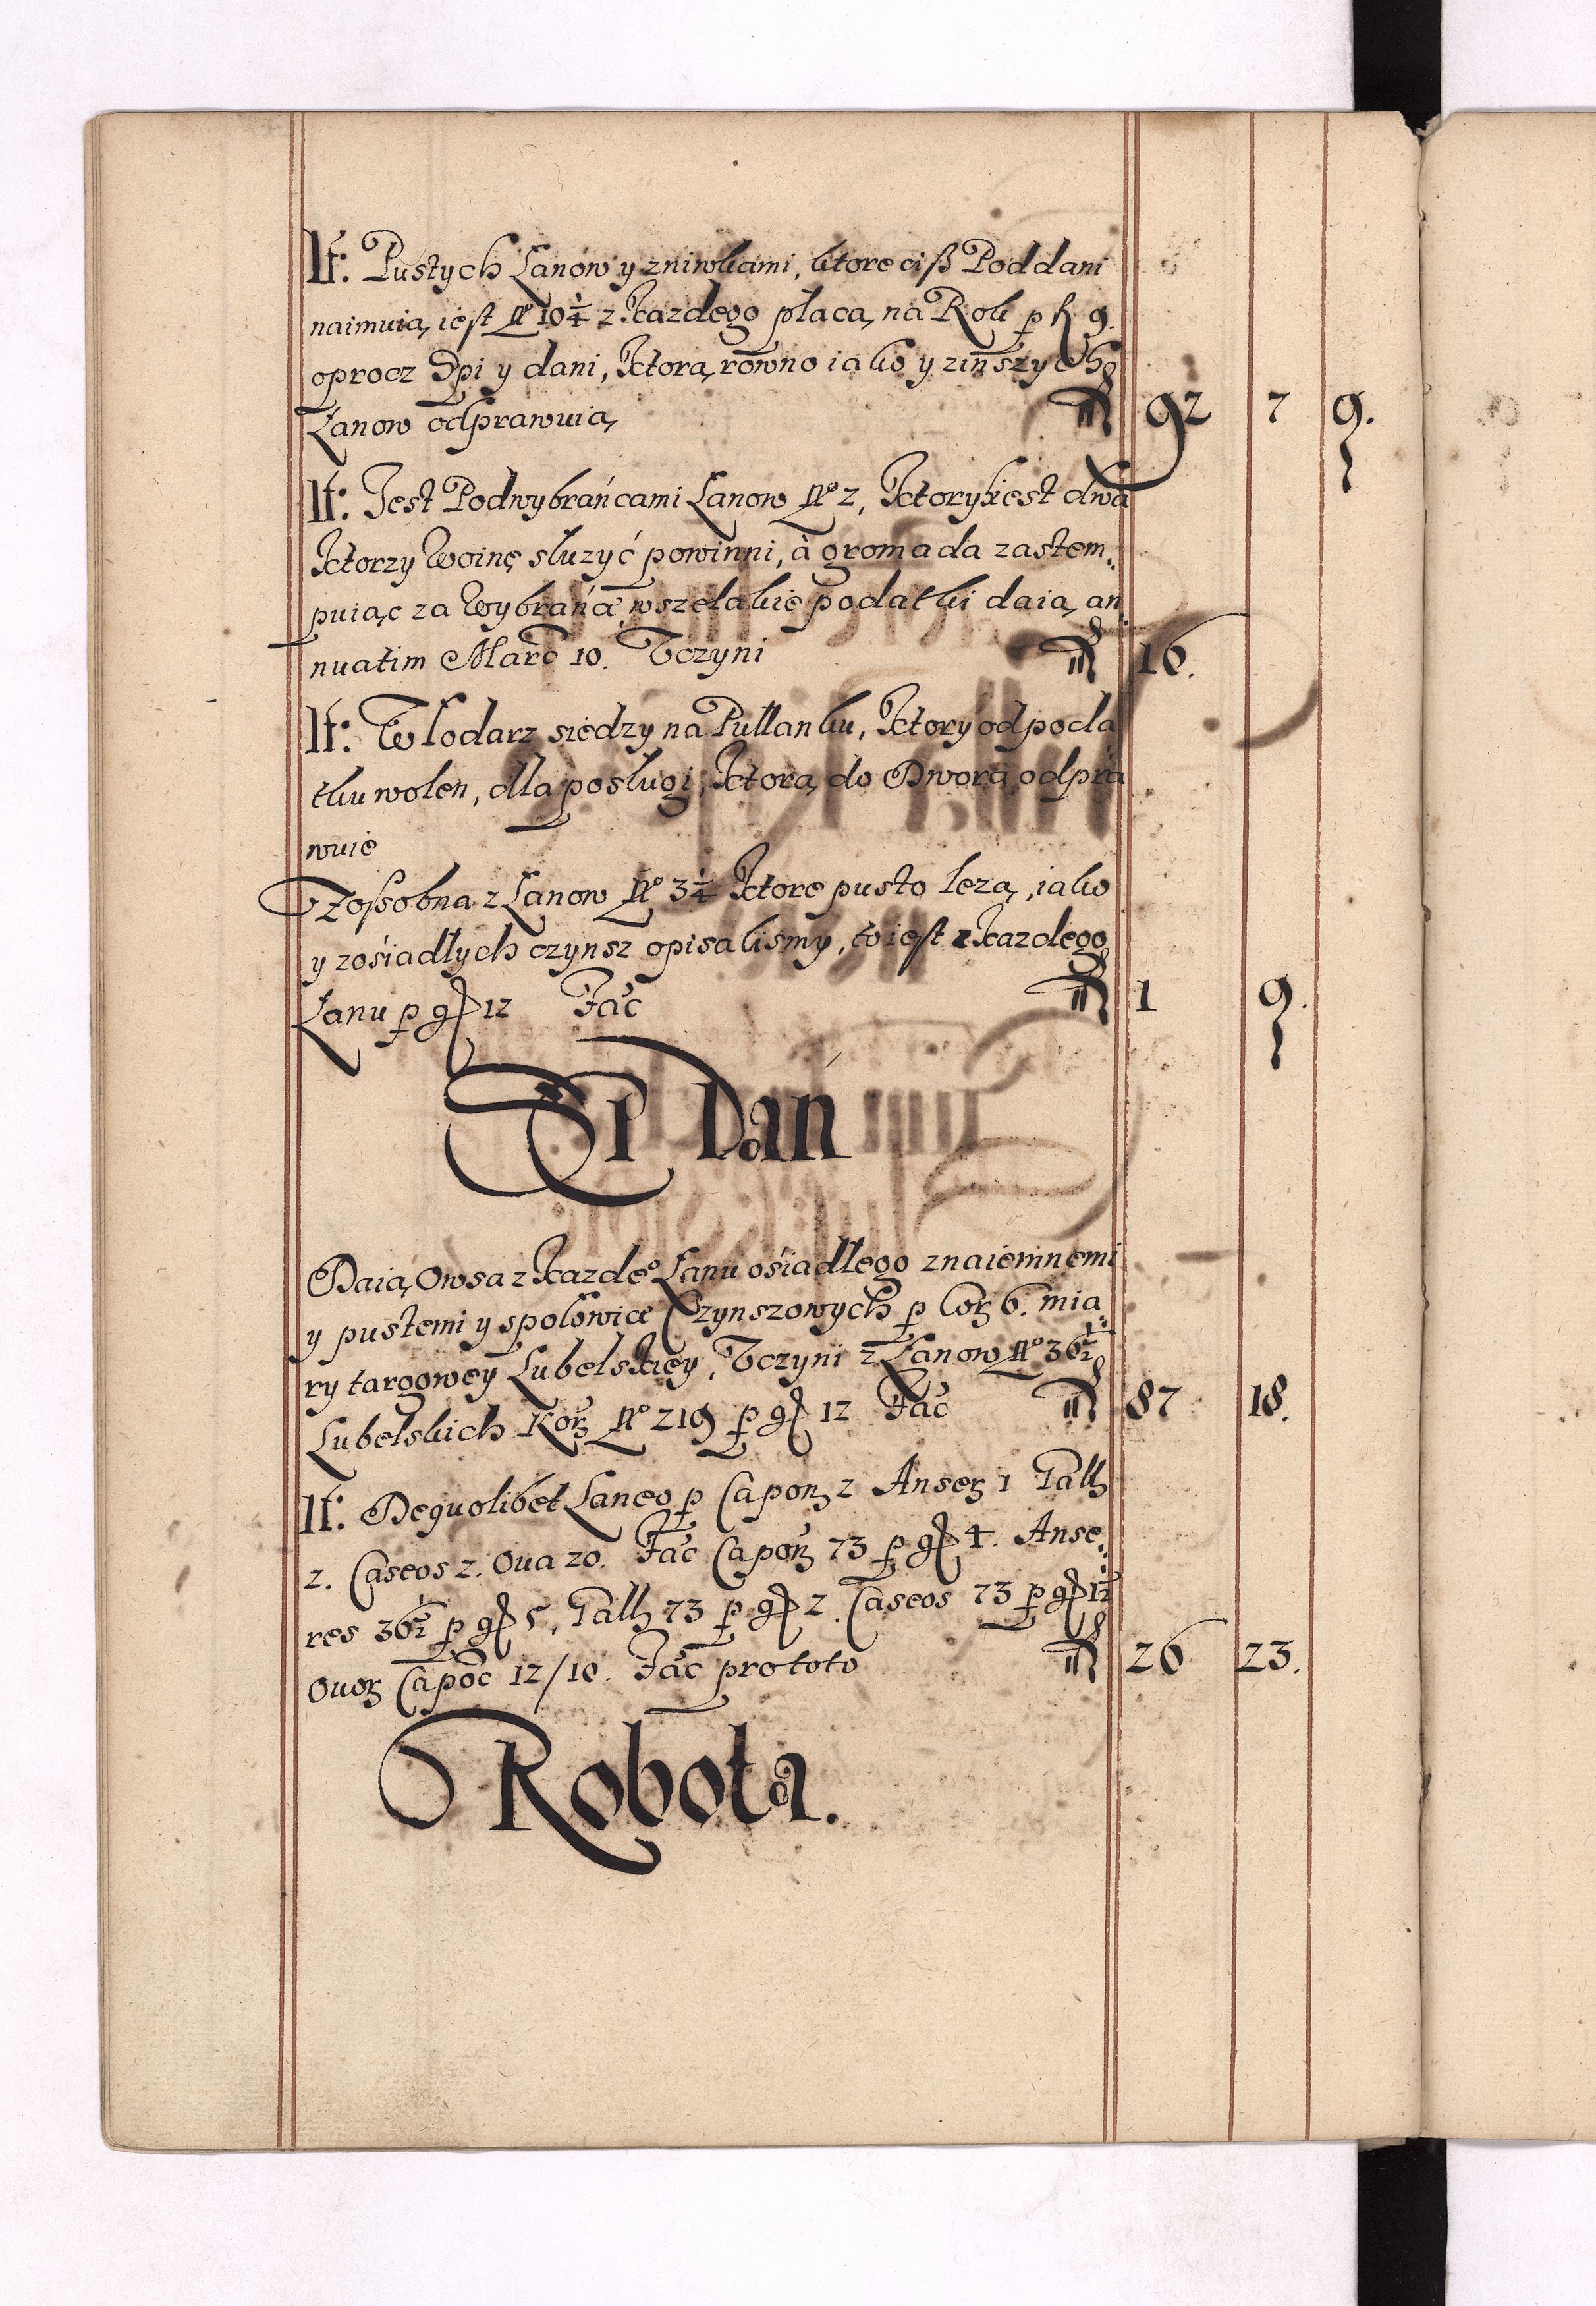 It: Pustych Łanow y zniwkami, ktore ciß Poddani
naimuią, iest No 10 1/4 z Kazdego płacą, na Rok p f 9.
oprocz Dpi y dani, Ktorą, rowno iako y zinszych
Łanow odprawuią, f 92 7 9.
It: Jest Podwybrańcami Łanow No 2, Ktorych iest dwa
Ktorzy Woinę sluzyć powinni, à gromada zastem:
puiąc za Wybrańcę, wszelakie podatki daią, an
nuatim Marc 10. Tczyni f 16.
It: Włodarz siedzy na Pułlanku, Ktory od poda
tku wolen, dla posługi, Ktorą, do Dworu, odpra
wuie
Zoßobna z Łanow No 3 1/4 Ktore pusto lezą, iako
y zośiadłych czynsz opisalismy, to iest z Kazdego
Łanu p gr 12 Fac f 1 9.
SP Dań
Daią, Owsa z Kazdeo Łanu ośiadłego znaiemnemi
y pustemi y społowice Czynszowych p Cor 6. mia:
ry targowey Lubelskiey, Tczyni z Łanow No 36 1/2
Lubelskich Kor No 219 p gr 12 Fac f 87 18.
It: De quolibet Laneo p Capon 2 Anser 1 Gall
2. Caseos 2. Ova 20. Fac Capon 73 p gr 4. Anse:
res 36 1/2 p gr 5, Gall 73 p gr 2. Caseos 73 p gr 1 1/2
Ovor Capoc 12/10. Fac pro toto f 26 23.
Robota.